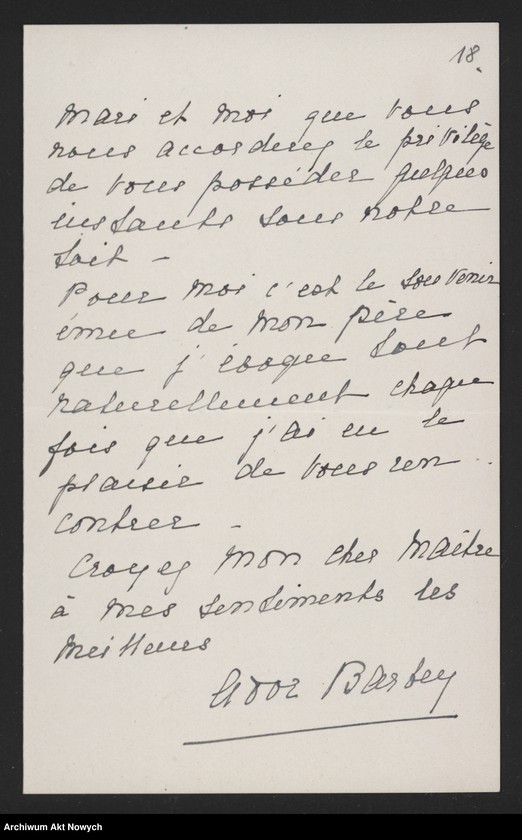 18.
mari et moi que vous
nous accorderez le privilège
de vous posséder quelques
instants sous notre
toit -
Pour moi c'est le souvenir
émue de mon père
que j'évoque tout
naturellement chaque
fois que j'ai eu le
plaisir de vous ren
contrer -
Croyez mon cher Maître
à mes sentiments les
meilleurs
Ador Barbey
Archiwum Akt Nowych